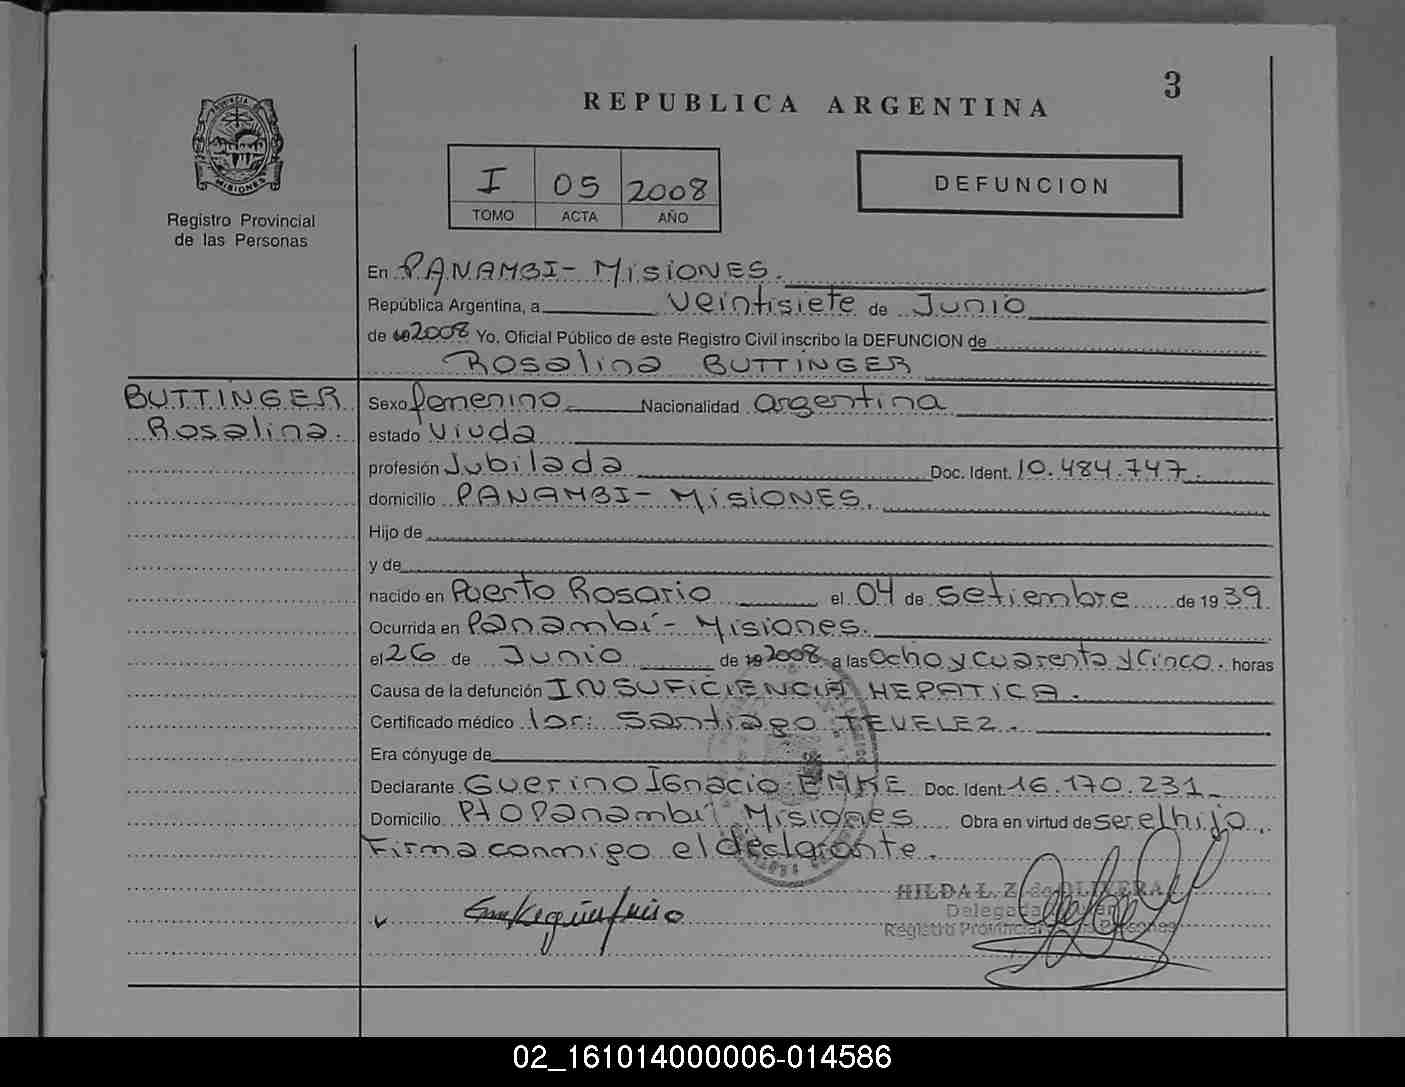 3
REPUBLICA ARGENTINA
PROVINCIA DE
MISIONES
Registro Provincial
de las Personas
I 05 2008
TOMO ACTA AÑO
DEFUNCION
En PANAMBI - MISIONES.
República Argentina, a veintisiete de Junio
de 2008 Yo, Oficial Público de este Registro Civil inscribo la DEFUNCION de
Rosalina BUTTINGER
BUTTINGER
Rosalina.
Sexo femenino Nacionalidad argentina
estado viuda
profesión Jubilada Doc. Ident. 10.484.747.
domicilio PANAMBI - MISIONES.
Hijo de
y de
nacido en Puerto Rosario el 04 de setiembre de 1939.
Ocurrida en Panambí - Misiones.
el 26 de Junio de 2008 a las ocho y cuarenta y cinco. horas
Causa de la defunción INSUFICIENCIA HEPATICA.
Certificado médico Santiago TEVELEZ.
Era cónyuge de
Declarante Guerino Ignacio EMKE Doc. Ident. 16.170.231
Domicilio Pto Panambí Misiones Obra en virtud de ser el hijo.
Firma conmigo el declarante.
HILDA L. Z. de OLIVERA
Delegada
Registro Provincial de las Personas
02_161014000006-014586